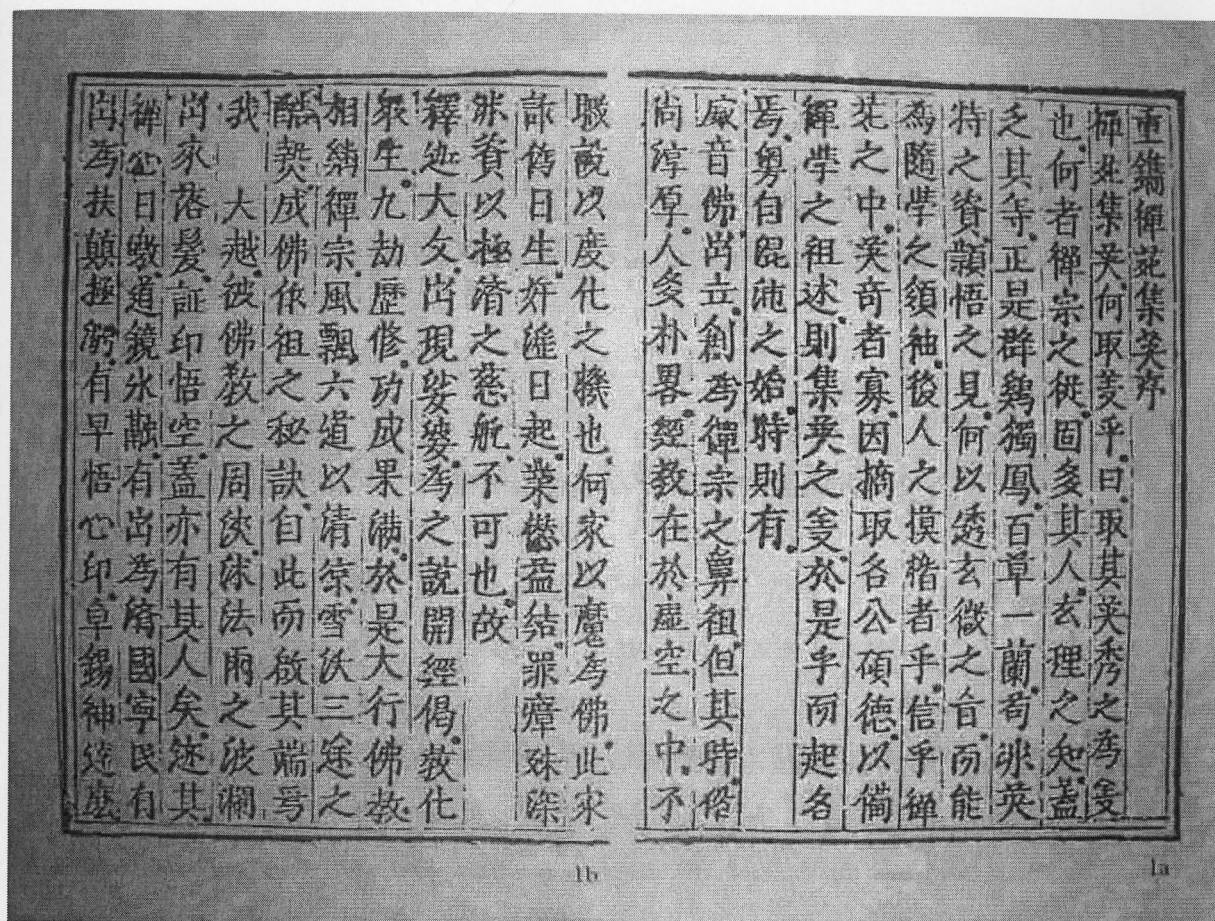 重鐫禪苑集英序
禪苑集英何取羙乎曰取其英秀之爲羙
也何者禪宗之從固多其人玄理之知蓋
乏其等正是群鷄獨鳳百草一蘭苟非英
特之資頴悟之見何以透玄微之旨而能
爲隨學之領袖後人之摸楷者乎信乎禪
苑之中英奇者寡因摘取各公碩德以備
禪學之祖述則集英之羙於是乎而起名
焉粤自混沌之始時則有
威音佛出立創爲禪宗之鼻祖但其時俗
尚淳厚人多朴畧經教在於虚空之中不
職說以度化之機也何家以魔爲佛此宋
訛舊日生奸滛日起業𠎝益結罪瘴殊深
非資以極濟之慈航不可也故
釋迦大文出現娑婆爲之說開經偈教化
衆生九劫歷修功成果滿於是大行佛教
相綿禪宗風飄六道以清凉雪沃三途之
酷𤍠成佛作祖之秘訣自此而啟其端焉
我 大越彼佛教之周浹沐法雨之波瀾
出家落髮証印悟空蓋亦有其人矣迹其
禪心日曒道鏡氷融有出爲濟國寧民有
出爲扶顛拯溺有早悟心印卓錫神遊